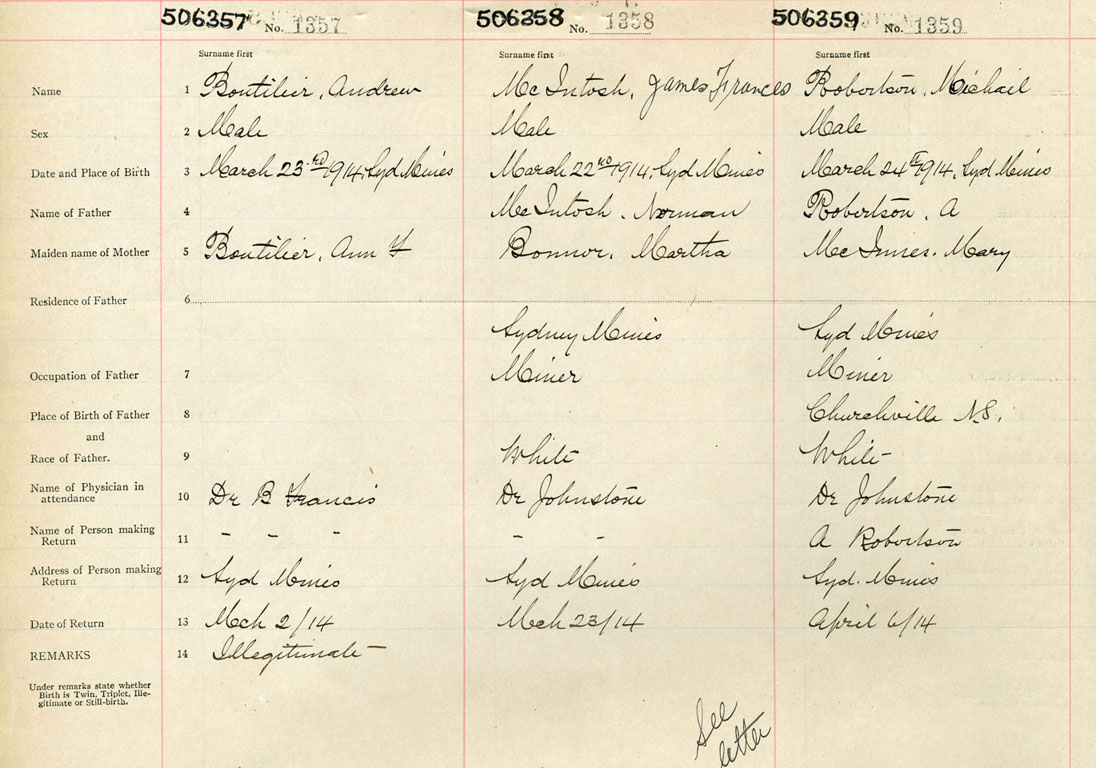 506357 No. 1357 506358 No. 1358 506359 No. 1359
Surname first Surname first Surname first
Name 1 Boutilier, Andrew McIntosh, James Frances Robertson, Michail
Sex 2 Male Male Male
Date and Place of Birth 3 March 23rd 1914, Syd Mines March 22nd 1914, Syd Mines March 24th 1914, Syd Mines
Name of Father 4 McIntosh, Norman Robertson, A
Maiden name of Mother 5 Boutilier, Ann F Bonnor, Martha McInnes, Mary
Residence of Father 6
Sydney Mines Syd Mines
Occupation of Father 7 Miner Miner
Place of Birth of Father 8 Churchville N.S.
and
Race of Father. 9 White White
Name of Physician in
attendance 10 Dr B Francis Dr Johnstone Dr Johnstone
Name of Person making
Return 11 - - - - - A Robertson
Address of Person making
Return 12 Syd Mines Syd Mines Syd. Mines
Date of Return 13 Mch 2/14 Mch 23/14 April 6/14
REMARKS 14 Illegitimate
Under remarks state whether
Birth is Twin, Triplet, Ille-
gitimate or Still-birth.
See
letter